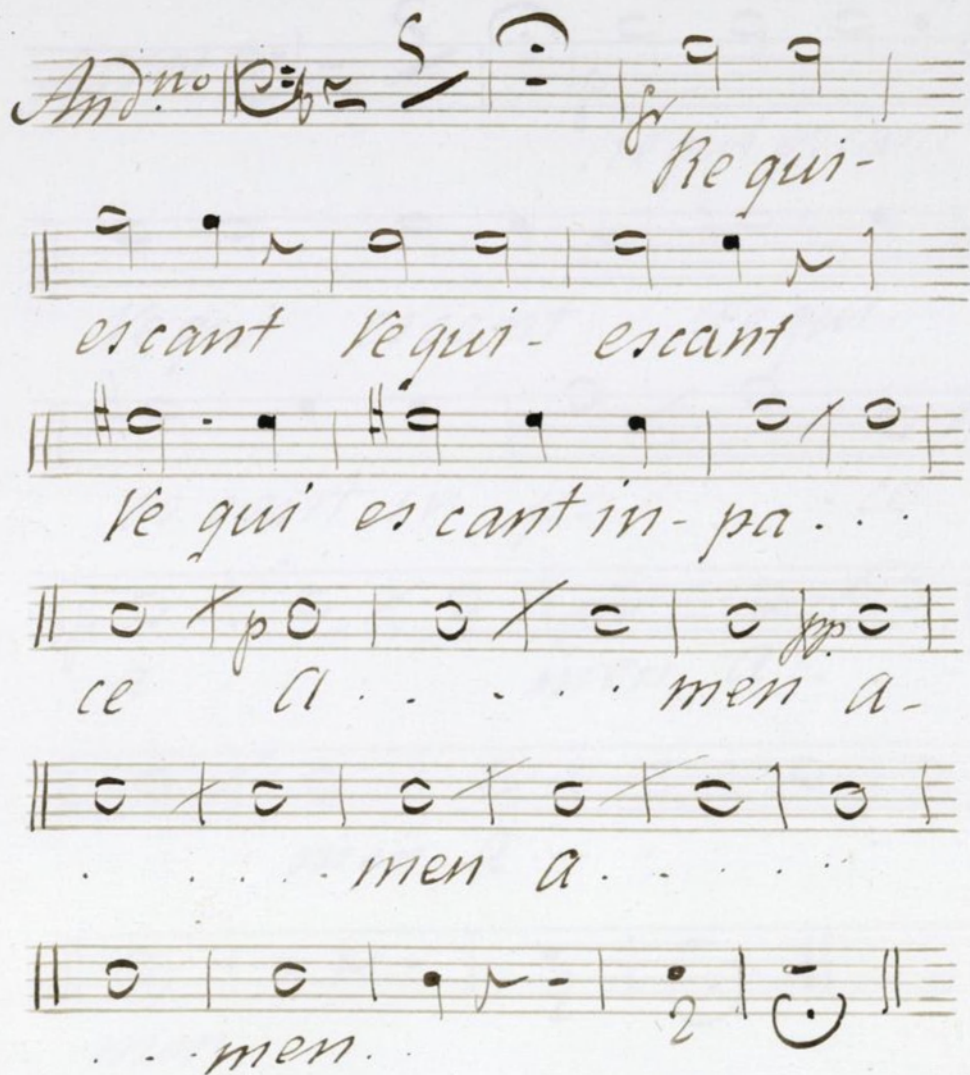 And.no 5
fr
Re qui-
escant Requi- escant
Re qui es cant in- pa . . .
p pp.
ce a . . . . . men a-
. . . . . men a . . . . .
2
. . . men. .